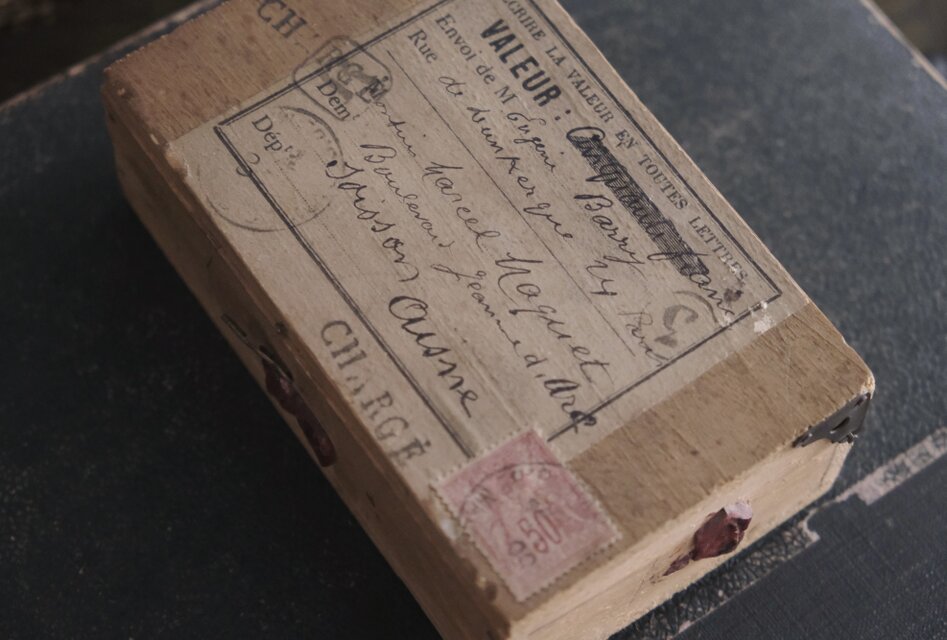 CH
ÉCRIRE LA VALEUR EN TOUTES LETTRES
VALEUR :
Envoi de M Eugène Barry
Rue de Dunkerque 24 Paris
Demt
Marcel Maquet
Boulevard Jeanne d'Arc
Dépt
Soissons
Aisne
CHARGÉ
50